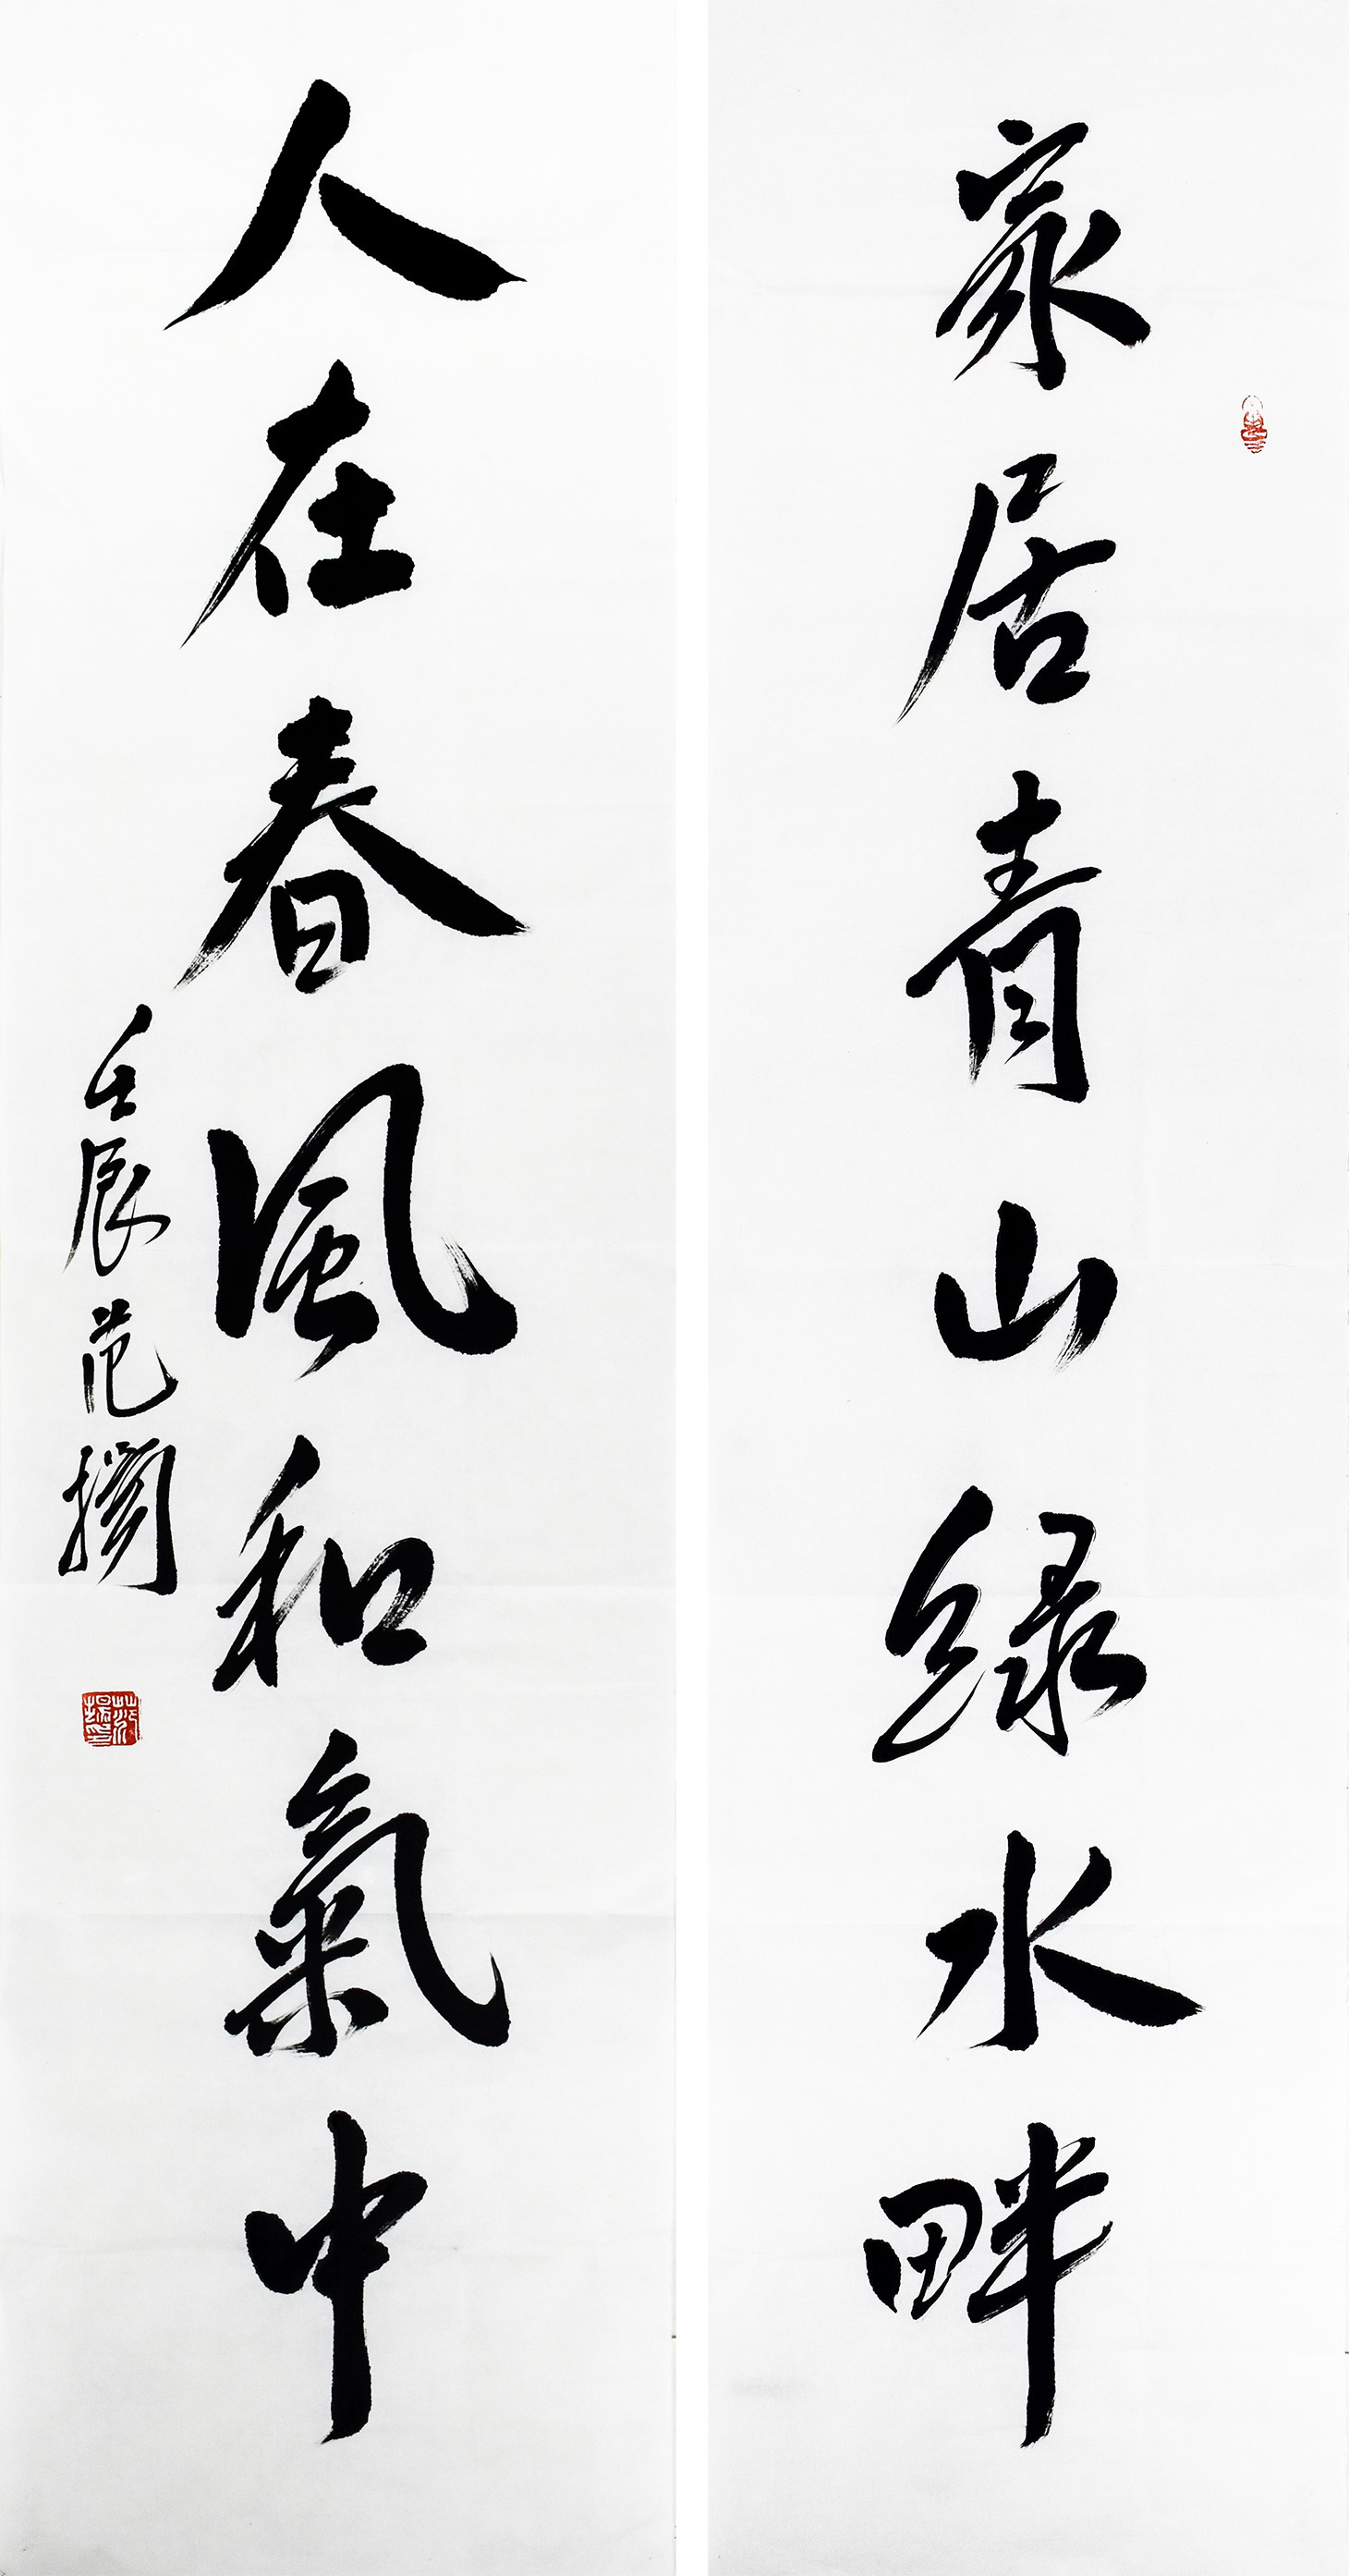 家居青山緑水畔
人在春風和氣中
壬辰范㧑